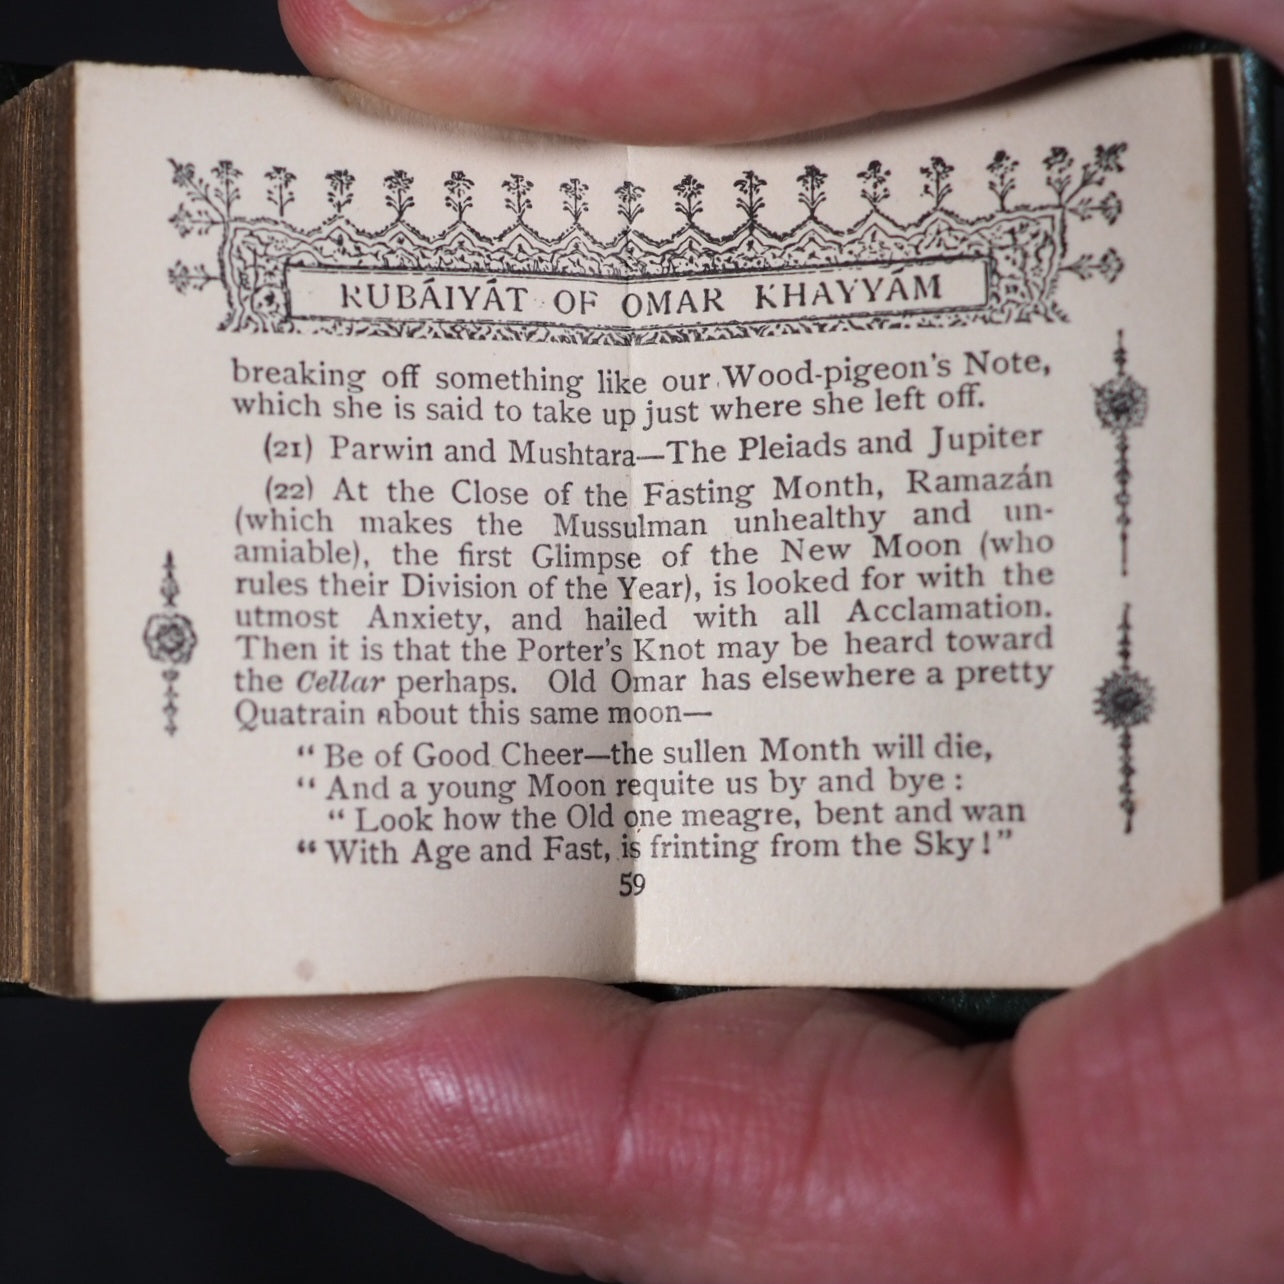 RUBÁIYÁT OF OMAR KHAYYÁM
breaking off something like our Wood-pigeon's Note,
which she is said to take up just where she left off.
(21) Parwin and Mushtara—The Pleiads and Jupiter
(22) At the Close of the Fasting Month, Ramazán
(which makes the Mussulman unhealthy and un-
amiable), the first Glimpse of the New Moon (who
rules their Division of the Year), is looked for with the
utmost Anxiety, and hailed with all Acclamation.
Then it is that the Porter's Knot may be heard toward
the Cellar perhaps. Old Omar has elsewhere a pretty
Quatrain about this same moon—
“Be of Good Cheer—the sullen Month will die,
“And a young Moon requite us by and bye :
“Look how the Old one meagre, bent and wan
“With Age and Fast, is frinting from the Sky!”
59